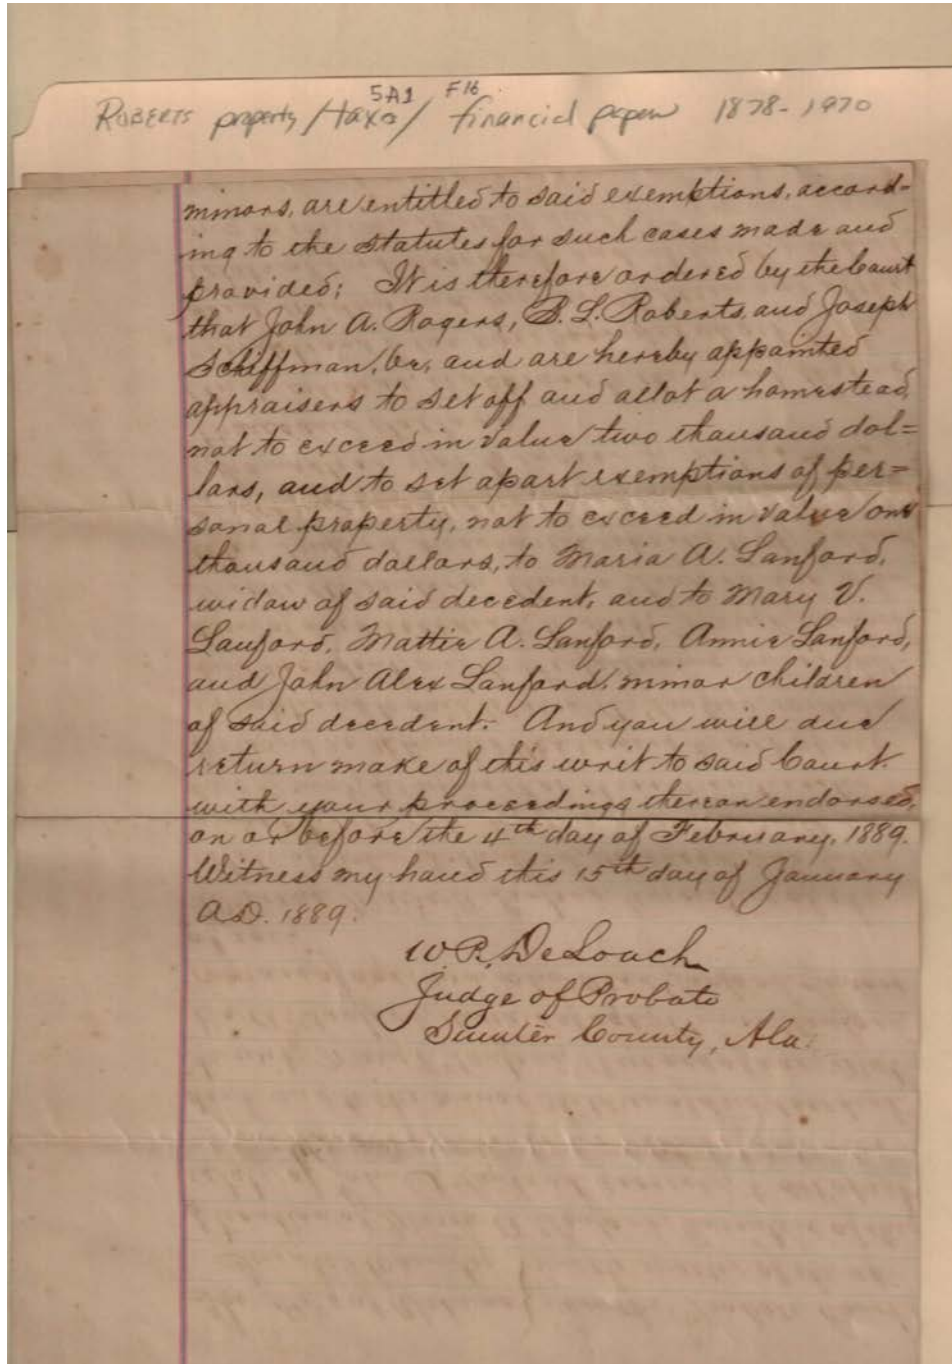 5A1 F16
ROBERTS property / taxes / financial papers 1878-1970
minors, are entitled to said exemptions, accord=
ing to the statutes for such cases made and
provided; It is therefore ordered by the Court
that John A. Rogers, B. L. Roberts, and Joseph
Schiffman, be, and are hereby appointed
appraisers to set off and allot a homestead,
not to exceed in value two thousand dol=
lars, and to set apart exemptions of per=
sonal property, not to exceed in value one
thousand dollars, to Maria A. Lanford,
widow of said decedent, and to Mary V.
Lanford, Mattie A. Lanford, Annie Lanford,
and John Alex Lanford, minor children
of said decedent. And you will due
return make of this writ to said Court
with your proceedings thereon endorsed,
on or before the 4th day of February, 1889.
Witness my hand this 15th day of January
A.D. 1889.
W. R. DeLoach
Judge of Probate
Sumter County, Ala.